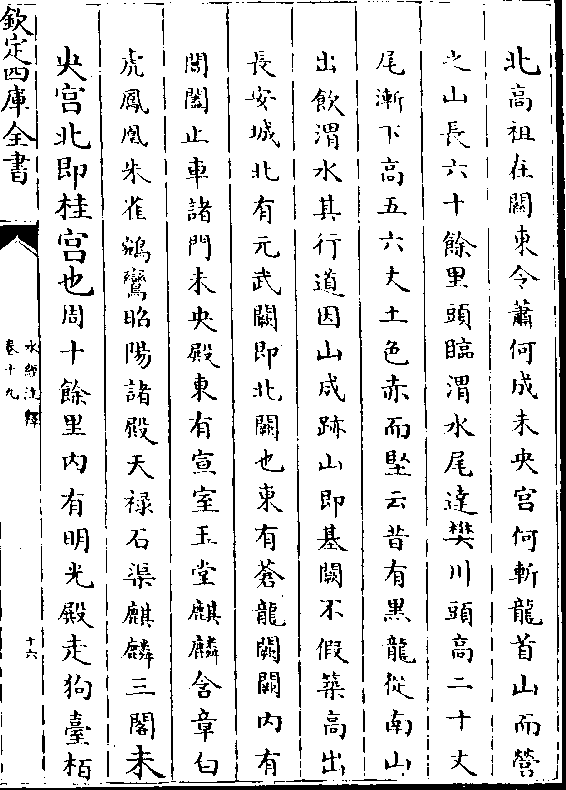 北高祖在關東令蕭何成未央宫何斬龍首山而營
之山長六十餘里頭臨渭水尾達樊川頭高二十丈
尾漸下高五六丈土色赤而堅云昔有黑龍從南山
出飲渭水其行道因山成跡山即基闕不假築高出
長安城北有元武闕即北闕也東有蒼龍闕闕内有
閶闔止車諸門未央殿東有宣室玉堂麒麟含章白
虎鳳凰朱雀鵷鸞昭陽諸殿天禄石渠麒麟三閣未
央宫北即桂宫也周十餘里内有明光殿走狗臺栢
欽定四庫全書
水經注釋
卷十九
十六